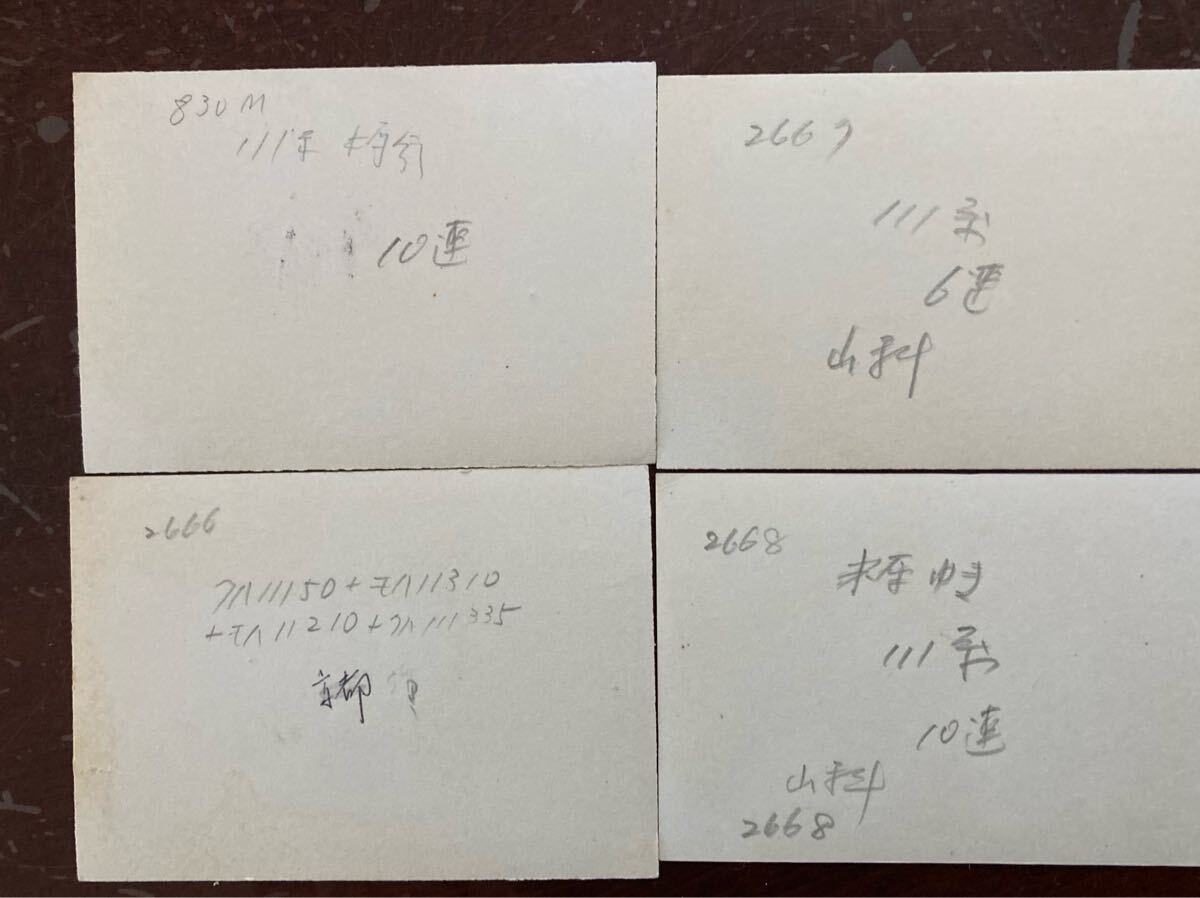 830M
111系
10連
2667
111系
6連
山科
2666
クハ111 50+モハ111 310
+モハ112 10+クハ111 335
京都
2668
米原ゆき
111系
10連
山科
2668